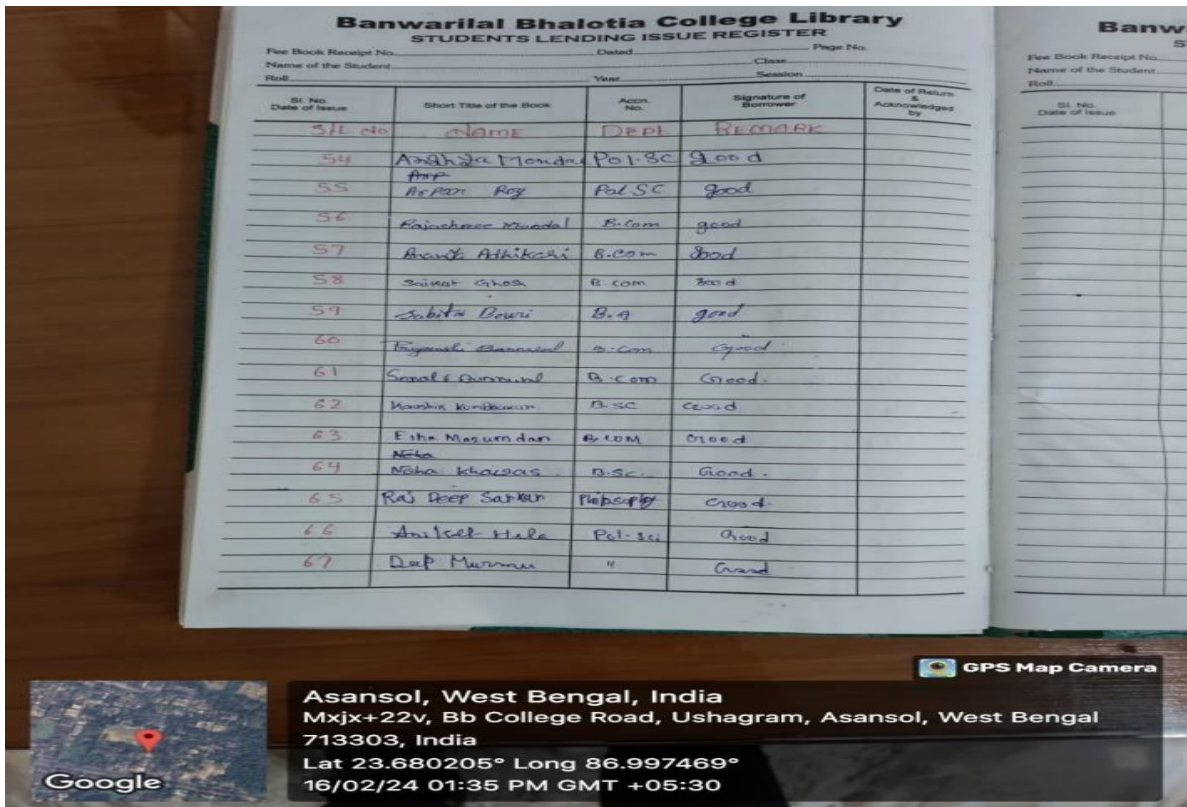 Banwarilal Bhalotia College Library
STUDENTS LENDING ISSUE REGISTER
Fee Book Receipt No. Dated Page No.
Name of the Student Class
Roll Year Session
Sl. No. Date of Issue Short Title of the Book Accn. No. Signature of Borrower Date of Return & Acknowledged by
S/L NO NAME DEPT REMARK
54 Monda Pol.SC good
55 Arpan Roy Pol SC good
56 Rajashree Mondal B.Com good
57 Adhikari B.Com good
58 Saikat Ghosh B.com good
59 Sabita Bouri B.A good
60 B.Com Good
61 B.com Good.
62 B.SC Good
63 Esha Mazumdar B.COM Good
Neha
64 Neha Khawas B.Sc. Good.
65 Raj Deep Sarkar Philosophy Good.
66 Aniket Hela Pol-Sci Good
67 Deep Murmu " Good
Banw
S
Fee Book Receipt No.
Name of the Student
Roll
Sl. No. Date of Issue
GPS Map Camera
Google
Asansol, West Bengal, India
Mxjx+22v, Bb College Road, Ushagram, Asansol, West Bengal
713303, India
Lat 23.680205° Long 86.997469°
16/02/24 01:35 PM GMT +05:30